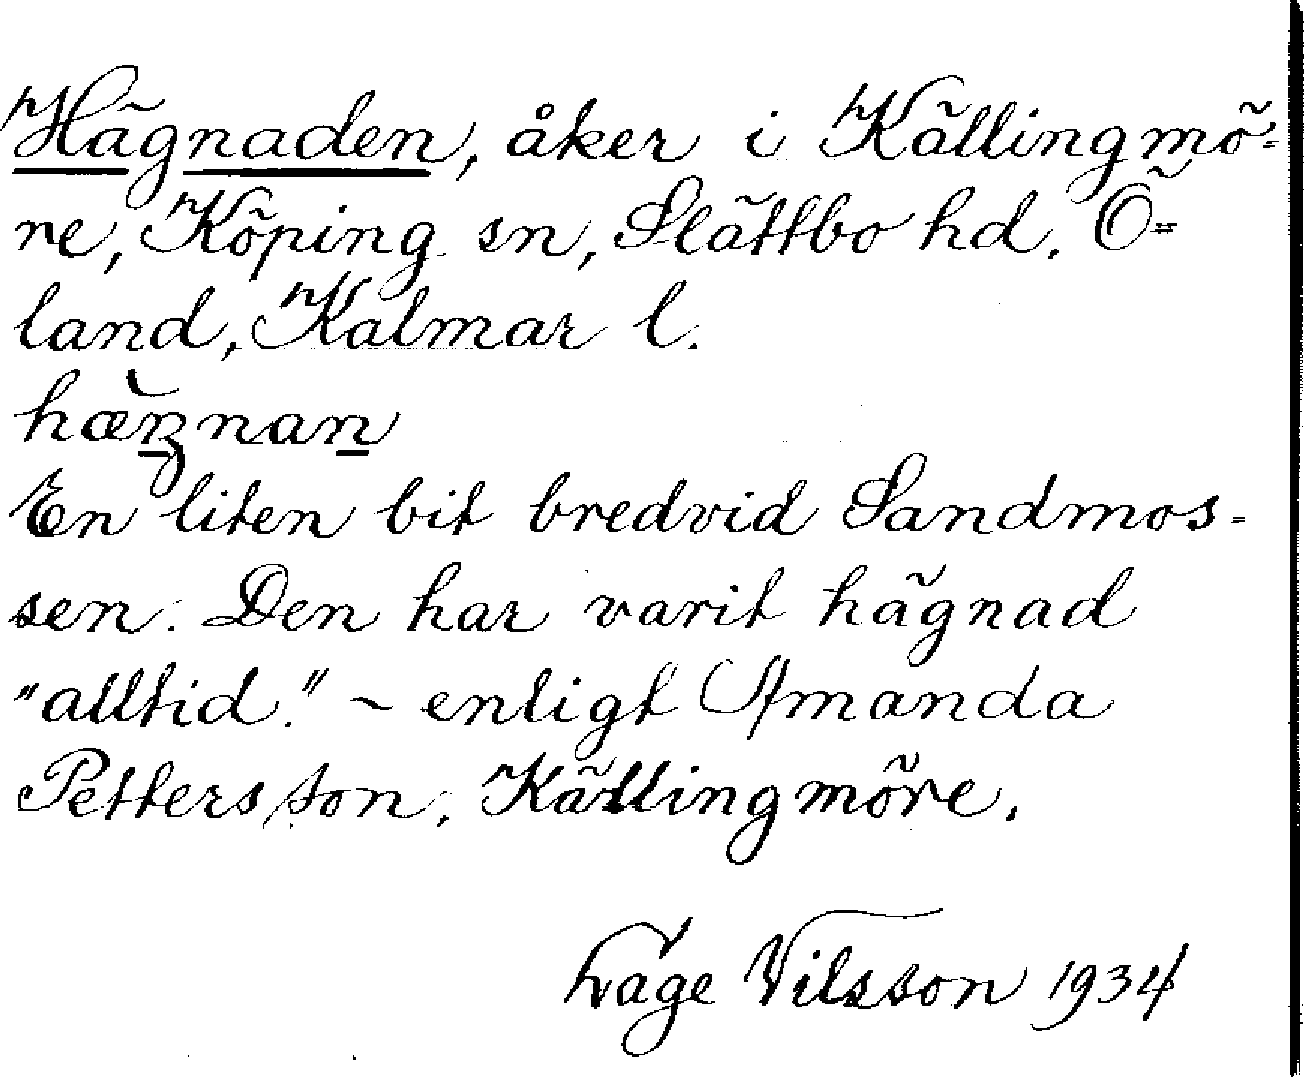 Hägnaden, åker i Källingmö=
re, Köping sn, Slättbo hd. Ö=
land, Kalmar l.
En liten bit bredvid Sandmos=
sen. Den har varit hägnad
"alltid." ~ enligt Amanda
Pettersson, Källingmöre.
Tage Nilsson 1934